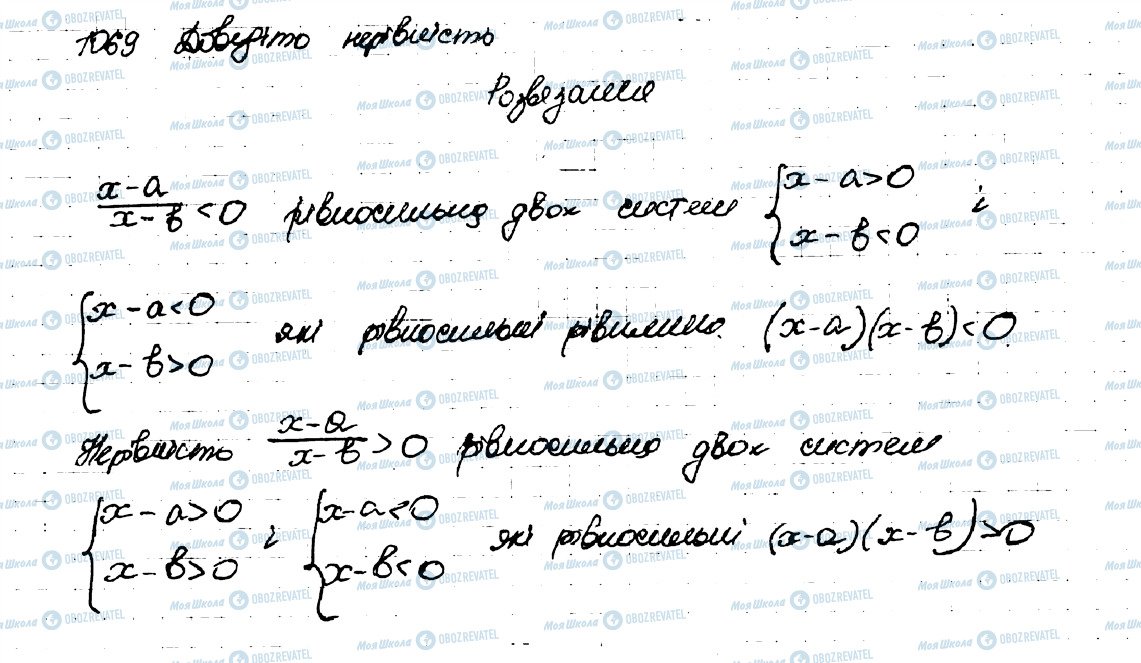 1069 Доведіто нерівність
Розвязання
x-a / x-b < 0 рівносильна двох систем { x-a>0 і
x-b<0
{ x-a<0
x-b>0 які рівносильні рівнянню. (x-a)(x-b)<0
Нерівність x-a / x-b > 0 рівносильна двох систем
{ x-a>0 і { x-a<0 які рівносильні (x-a)(x-b)>0
x-b>0 x-b<0
МояШкола OBOZREVATEL